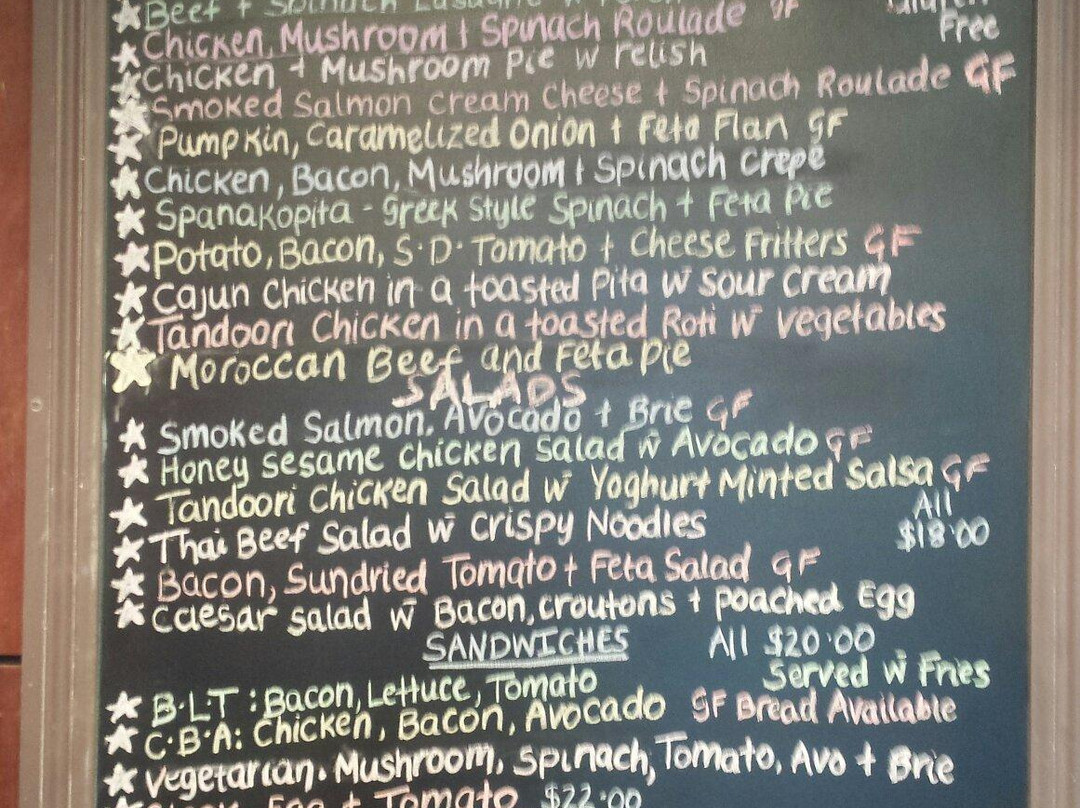 Beef + Spinach Lasagne w
Gluten
Chicken, Mushroom + Spinach Roulade GF
Free
Chicken + Mushroom Pie w relish
Smoked Salmon Cream Cheese + Spinach Roulade GF
Pumpkin, Caramelized Onion + Feta Flan GF
Chicken, Bacon, Mushroom + Spinach Crepe
Spanakopita - Greek Style Spinach + Feta Pie
Potato, Bacon, S.D. Tomato + Cheese Fritters GF
Cajun Chicken in a toasted Pita w Sour Cream
Tandoori Chicken in a toasted Roti w vegetables
Moroccan Beef and Feta Pie
SALADS
Smoked Salmon, Avocado + Brie GF
Honey Sesame Chicken Salad w Avocado GF
Tandoori Chicken Salad w Yoghurt Minted Salsa GF
All
Thai Beef Salad w Crispy Noodles
$18.00
Bacon, Sundried Tomato + Feta Salad GF
Caesar Salad w Bacon, croutons + poached Egg
SANDWICHES All $20.00
Served w Fries
B.L.T : Bacon, Lettuce, Tomato
C.B.A: Chicken, Bacon, Avocado GF Bread Available
Vegetarian. Mushroom, Spinach, Tomato, Avo + Brie
Egg + Tomato $22.00